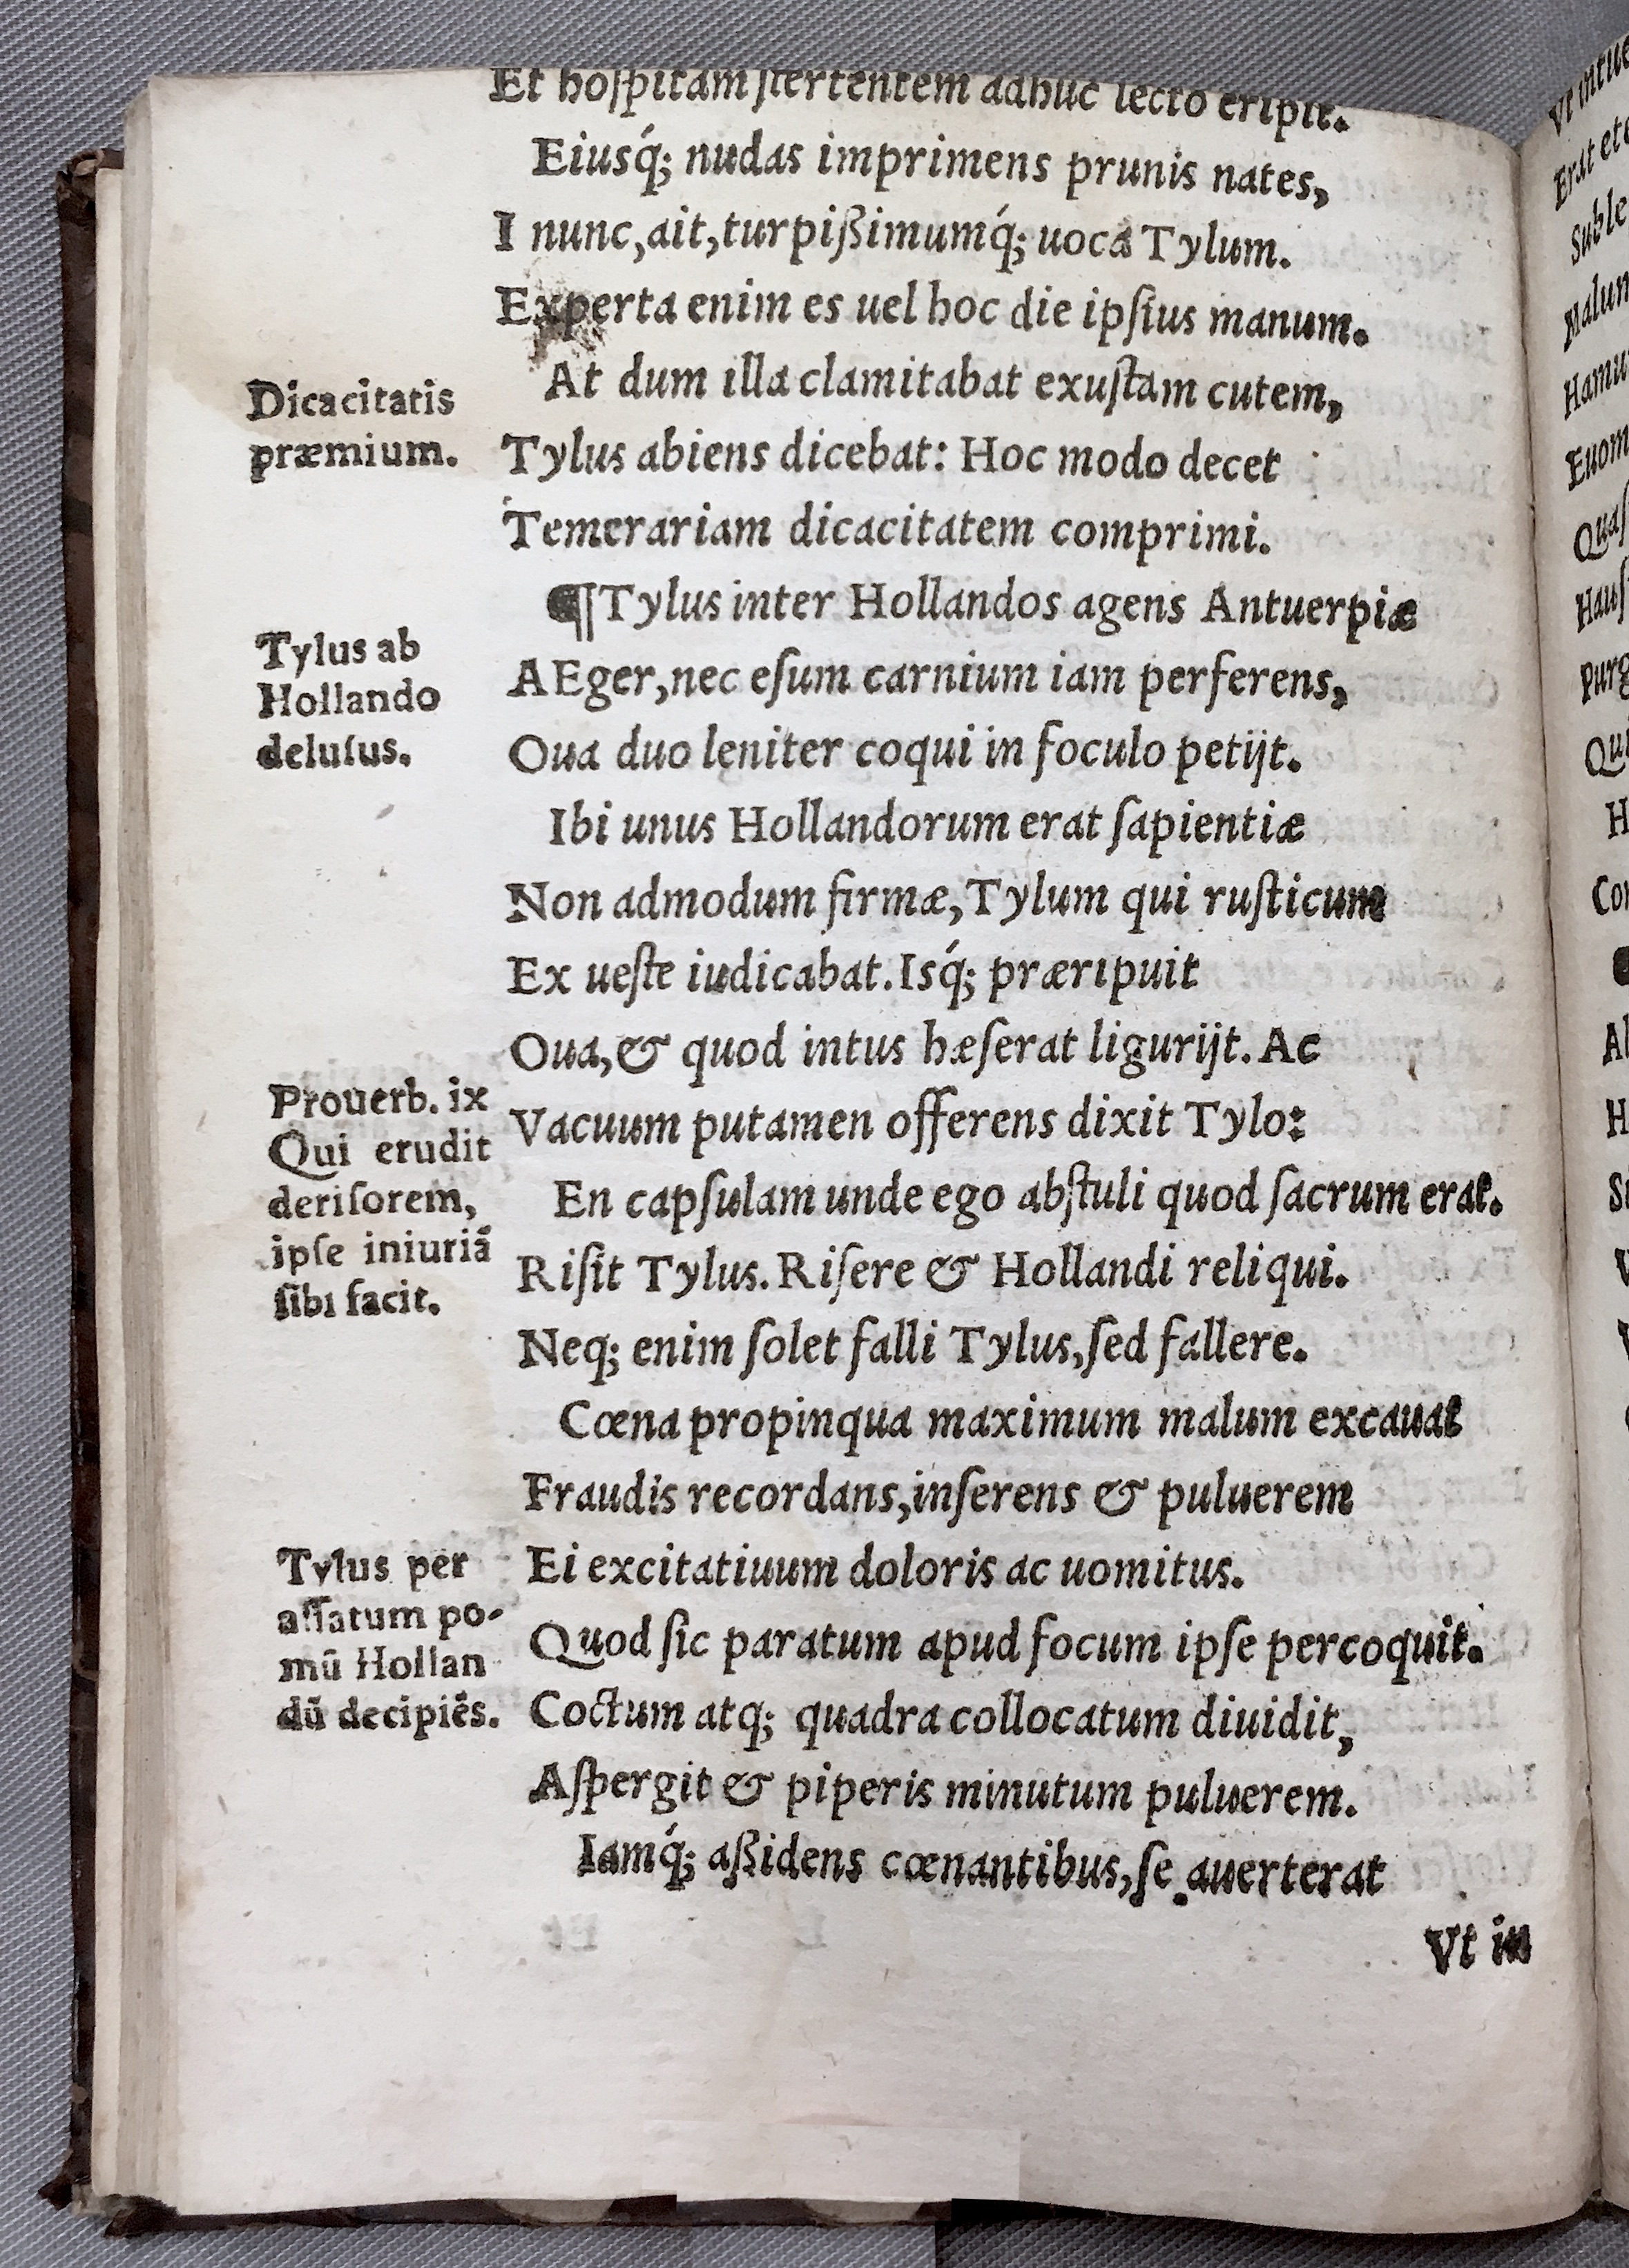 Et hoſpitam ſtertentem adhuc lecto eripit.
Eiusq́; nudas imprimens prunis nates,
I nunc,ait,turpißimumq́; uoca Tylum.
Experta enim es uel hoc die ipſius manum.
At dum illa clamitabat exuſtam cutem,
Dicacitatis
præmium.
Tylus abiens dicebat: Hoc modo decet
Temerariam dicacitatem comprimi.
¶Tylus inter Hollandos agens Antuerpiæ
Tylus ab
Hollando
deluſus.
AEger,nec eſum carnium iam perferens,
Oua duo leniter coqui in foculo petijt.
Ibi unus Hollandorum erat ſapientiæ
Non admodum firmæ,Tylum qui ruſticum
Ex ueſte iudicabat.Isq́; præripuit
Oua,& quod intus hæſerat ligurijt.Ac
Prouerb. ix
Qui erudit
deriſorem,
ipſe iniuriā
ſibi facit.
Vacuum putamen offerens dixit Tylo:
En capſulam unde ego abſtuli quod ſacrum erat.
Riſit Tylus.Riſere & Hollandi reliqui.
Neq; enim ſolet falli Tylus,ſed fallere.
Cœna propinqua maximum malum excauat
Fraudis recordans,inſerens & puluerem
Tylus per
aſſatum po-
mū Hollan
dū decipiēs.
Ei excitatiuum doloris ac uomitus.
Quod ſic paratum apud focum ipſe percoquit.
Coctum atq; quadra collocatum diuidit,
Aſpergit & piperis minutum puluerem.
Iamq́; aßidens cœnantibus,ſe auerterat
Vt in
Vt intue
Erat ete
Suble
Malum
Hamu
Euom
Quaſ
Hauſ
Purg
Qui
H
Con
¶
Al
H
Si